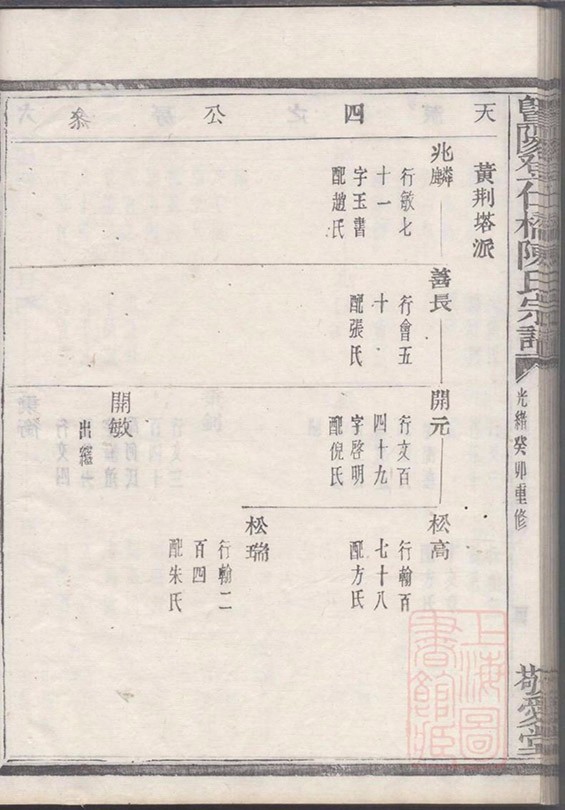 暨陽孝仁橋陳氏宗譜
光緒癸卯重修
敬愛堂
天四公叅
黃荆塔派
兆麟
行敏七
十一
字玉書
配趙氏
善長
行會五
十
配張氏
開元
行文百
四十九
字啓明
配倪氏
開敏
出繼
松高
行翰百
七十八
配方氏
松瑞
行翰二
百四
配朱氏
上海圖
書館藏